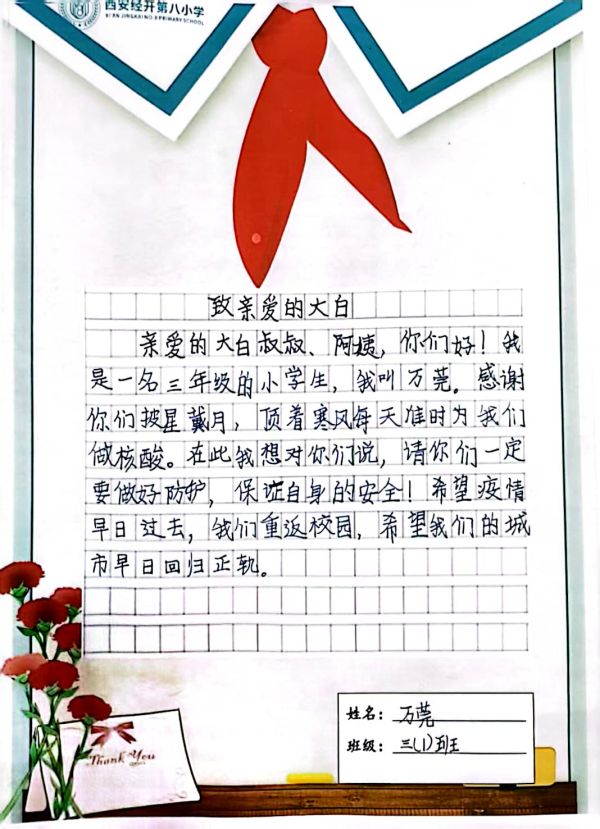 西安经开第八小学
XI'AN JINGKAI NO.8 PRIMARY SCHOOL
致亲爱的大白
亲爱的大白叔叔、阿姨，你们好！我
是一名三年级的小学生，我叫万莞。感谢
你们披星戴月，顶着寒风每天准时为我们
做核酸。在此我想对你们说，请你们一定
要做好防护，保证自身的安全！希望疫情
早日过去，我们重返校园，希望我们的城
市早日回归正轨。
姓名：万莞
班级：三(1)班
Thank You